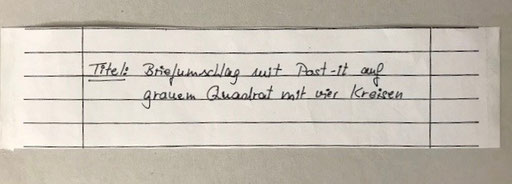 Titel: Briefumschlag mit Post-it auf
grauem Quadrat mit vier Kreisen